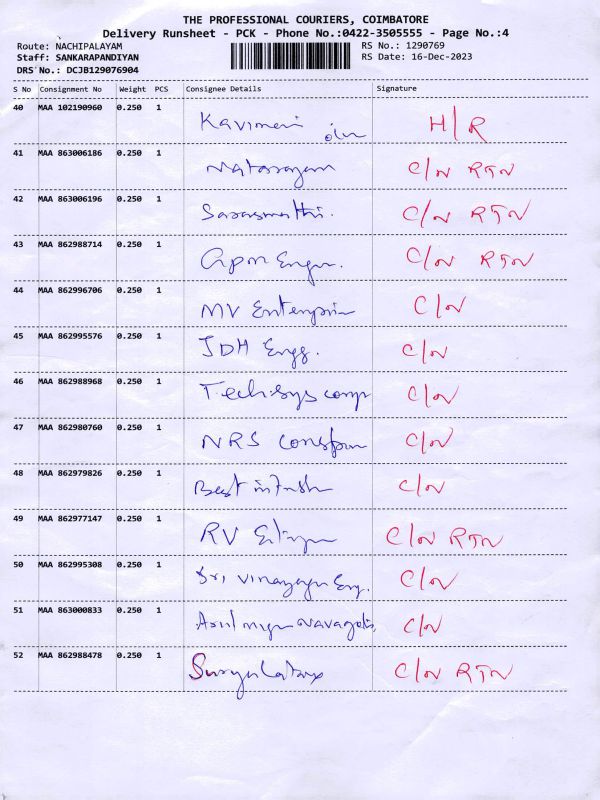 THE PROFESSIONAL COURIERS, COIMBATORE
Delivery Runsheet - PCK - Phone No.:0422-3505555 - Page No.:4
Route: NACHIPALAYAM RS No.: 1290769
Staff: SANKARAPANDIYAN RS Date: 16-Dec-2023
DRS No.: DCJB129076904
S No Consignment No Weight PCS Consignee Details Signature
40 MAA 102190960 0.250 1 H/R
41 MAA 863006186 0.250 1 Natarayan C/N RTN
42 MAA 863006196 0.250 1 C/N RTN
43 MAA 862988714 0.250 1 C/N RTN
44 MAA 862996706 0.250 1 MV C/N
45 MAA 862995576 0.250 1 JDH Engg. C/N
46 MAA 862988968 0.250 1 Techsys comp C/N
47 MAA 862980760 0.250 1 NRS C/N
48 MAA 862979826 0.250 1 Best C/N
49 MAA 862977147 0.250 1 RV C/N RTN
50 MAA 862995308 0.250 1 Sri Vinayaga Eng. C/N
51 MAA 863000833 0.250 1 C/N
52 MAA 862988478 0.250 1 C/N RTN